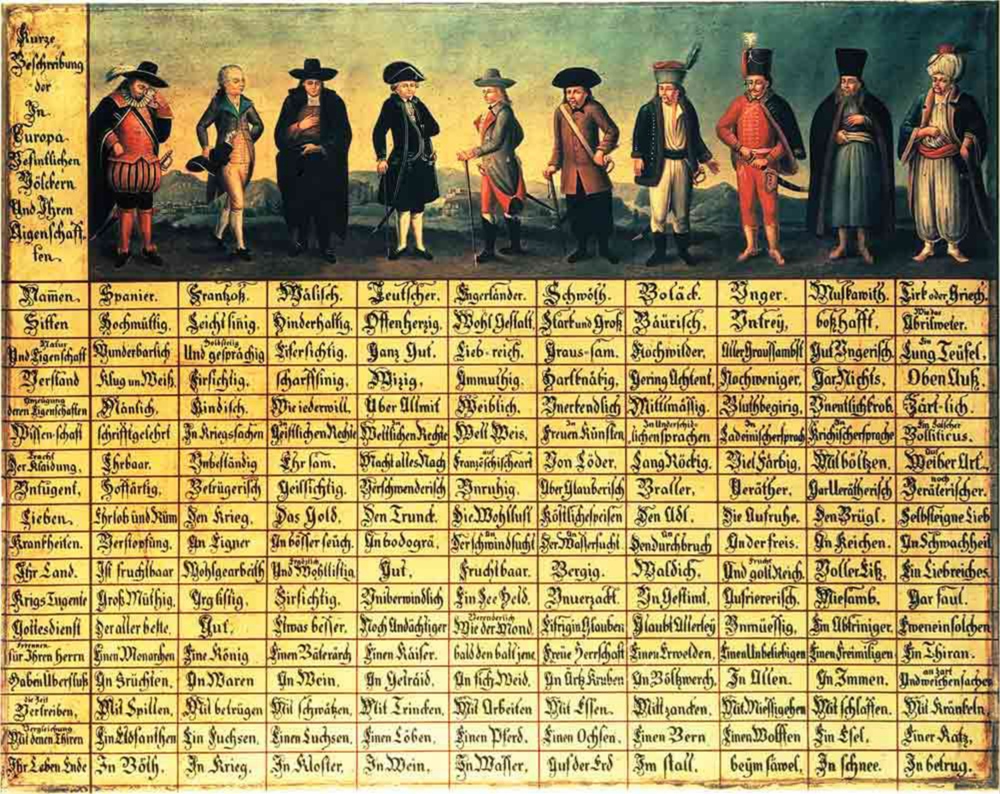 Kurze
Beschreibung
der
In
Europa
Befintlichen
Völckern
Und Ihren
Aigenschaff-
ten.
Namen. Spanier. Frantzoß. Wälisch. Teutscher. Engerländer. Schwöth. Boläck. Unger. Muskawith. Tirk oder Griech.
Sitten Hochmüttig. Leicht sinig. Hinderhaltig. Offen Herzig. Wohl Gestalt. Stark und Groß Bäurisch. Untrey. boßhafft. Wie das Abrilweter.
Natur Und Eigenschaft Wunderbarlich Holdseelig Und gespräching Eifersichtig. Ganz Gut. Lieb-reich. Graus-sam. Nochwilder. Aller Graussambst Gut Ungerisch. Ein Lung Teüfel.
Verstand Klug un Weiß. Firsichtig. scharffsinig. Wizig. Ammuthig. Hartknäbig. Gering Achtent. Nochweniger. Gar Nichts. Oben Auß.
Anzeigung deren Eigenschaften Mänlich. Kindisch. Wie iederwill. Über Allmit Weiblich. Unerkendlich Mittlmässig. Bluthbegirig. Unentlichkrob. Zärt-lich.
Wissen schaft schrifftgelehrt In Kriegssachen Geistlichen Rechte Weltlichen Rechte Welt Weis. In Freuen Künsten In Underschid-lichen sprachen In Ladeinischer sprach In Krichischer sprache Ein Falscher Bolliticus.
Tracht Der Klaidung. Ehrbaar. Unbeständig Ehr sam. Macht alles Nach auf Französchischeart Von Löder. Lang Röckig. Viel Färbig. Mit böltzen. Auf Weiber Art.
Untugent. Hoffärtig. Betrügerisch Geillsichtig. Verschwenderisch Unruhig. Über Glauberisch Braller. Veräther. Gar Verätherisch noch Veräterischer.
Lieben. Ehrlob und Rüm Den Krieg. Das Gold. Den Trunck. Die Wohllust Köstlichespeisen Den Adl. Die Aufruhe. Den Brügl. Selbsteigne Lieb
Krankheiten. Verstopfung. An Eigner An bösser seüch. An bodogrä. An Der schwindsucht An Der Wassersucht An Den durchbruch An der freis. An Keichen. An Schwachheit
Ihr Land. Ist fruchtbaar Wohlgearbeith Ergözlich Und Wohllistig Gut. Fruchtbaar. Bergig. Waldich. Frucht Und goltReich. Voller Eiß. Ein Liebreiches
Krigs Tugente Groß Müthig. Arg listig. Firsichtig. Uniberwindlich Ein See Held. Unverzact. Un Gestimt. Aufriererisch. Miesamb. Gar faul.
Gottesdienst Der aller beste. Gut. Etwas besser. Noch Andächtiger Verenderlich Wie der Mond. Eifrig in Glauben Glaubt Allerley Unmüessig. Ein Abtriniger. Eweneinsolchen
Erkennen für Ihren Herrn Einen Monarchen Eine König Einen Bäterärch Einen Käiser. bald den balt jene. Freüe Herrschaft Einen Erwelden. Einen Unbeliebigen Einen Freimiligen Ein Thiran.
Haben Überfluß An Früchten. An Waren An Wein. An Geträid. An fich Weid. An Ärtz Kruben An Böltzwerch. In Allen. An Immen. An zart Und weichen sachen
die Zeit Vertreiben. Mit Spillen. Mit betrügen Mit schwätzen. Mit Trincken. Mit Arbeiten Mit Essen. Mitt zancken. Mit Miessigehen Mit schlaffen. Mit Kränkeln
Vergleichung Mit denen Thiren Ein Elofanthen Ein Fuchsen. Einen Luchsen. Einen Löben. Einen Pferd. Einen Ochsen. Einen Bern Einen Wolffen Ein Esel. Einer Katz.
Ihr Leben Ende In Böth. In Krieg. In Kloster. In Wein. In Wasser. Auf der Erd Im stall. beÿm säwel. In schnee. In betrug.